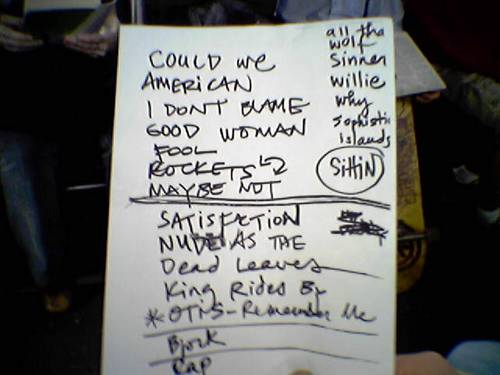 COULD we
AMERICAN
I DONT BLAME
GOOD WOMAN
FOOL
ROCKETS
MAYBE NOT
SATISFACTION
NUDE AS THE
Dead Leaves
King Rides By
*OTIS-Remember Me
Bjork
Rap
all tha
wolf
Sinner
willie
why
Sophistic
Islands
Sittin